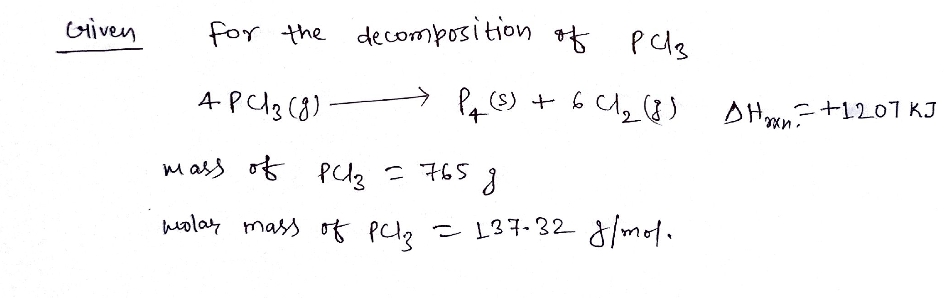 Given for the decomposition of PCl3
4 PCl3(g) ⟶ P4(s) + 6 Cl2(g) ΔHrxn = +1207 KJ
mass of PCl3 = 765 g
molar mass of PCl3 = 137.32 g/mol.